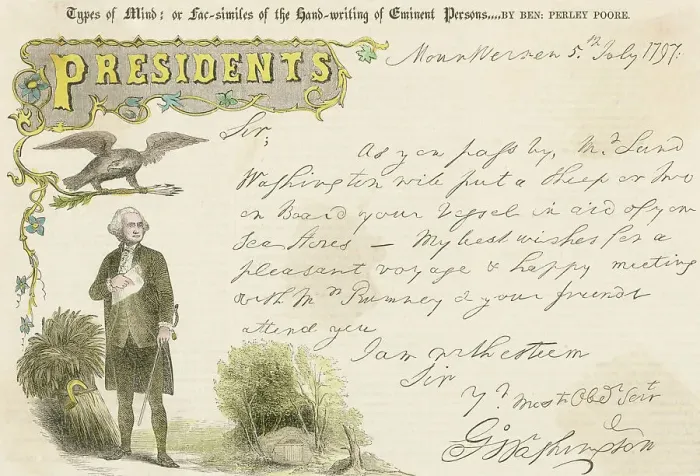 Types of Mind: or Fac-similes of the Hand-writing of Eminent Persons....BY BEN: PERLEY POORE.
PRESIDENTS
Mount Vernon 5.th July 1797.
Sir,
As you pass by, Mr. Lund
Washington will put a Sheep or two
on Board your Vessel in aid of your
Sea Stores — My best wishes for a
pleasant voyage & happy meeting
with Mrs Rumney & your friends
attend you
I am with esteem
Sir
Yr. Most Obedt Servt
Go: Washington